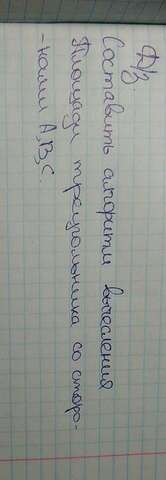 Д/з
Составить алгоритм вычесления
Площади треугольника со сторо-
-нами А,В,С.